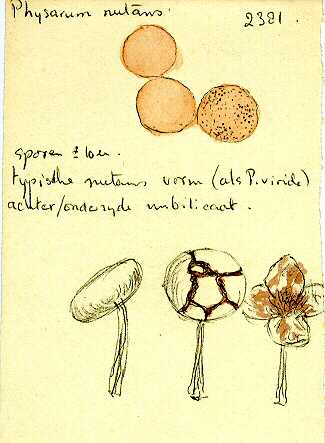 Physarum nutans. 2381.
sporen ± 10 µ.
typische nutans vorm (als P. viride)
achter/onderzyde umbilicaat.